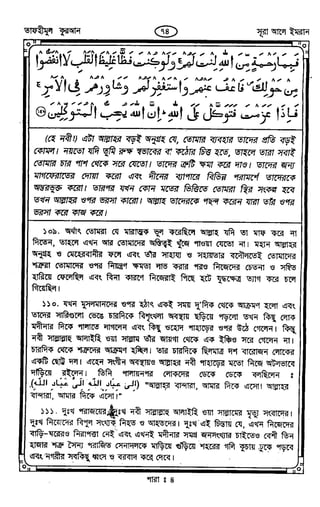 তাফহীমুল কুরআন
৭৪
সূরা আলে ইমরান
فَبِمَا رَحْمَةٍ مِّنَ اللّٰهِ لِنْتَ لَهُمْ ۚ وَلَوْ كُنْتَ فَظًّا غَلِيْظَ الْقَلْبِ لَا انْفَضُّوْا
مِنْ حَوْلِكَ ۖ فَاعْفُ عَنْهُمْ وَاسْتَغْفِرْ لَهُمْ وَشَاوِرْهُمْ فِي الْاَمْرِ ۚ
فَاِذَا عَزَمْتَ فَتَوَكَّلْ عَلَى اللّٰهِ ۚ اِنَّ اللّٰهَ يُحِبُّ الْمُتَوَكِّلِيْنَ
(হে নবী!) এটা আল্লাহর বড়ই অনুগ্রহ যে, তোমার ব্যবহার তাদের প্রতি বড়ই
কোমল। নয়তো যদি তুমি রুক্ষ স্বভাবের বা কঠোর চিত্ত হতে, তাহলে তারা সবাই
তোমার চার পাশ থেকে সরে যেতো। তাদের ত্রুটি ক্ষমা করে দাও। তাদের জন্য
মাগফেরাতের দোয়া করো এবং দীনের ব্যাপারে বিভিন্ন পরামর্শে তাদেরকে
অন্তরভুক্ত করো। তারপর যখন কোন মতের ভিত্তিতে তোমরা স্থির সংকল্প হবে
তখন আল্লাহর ওপর ভরসা করো। আল্লাহ তাদেরকে পছন্দ করেন যারা তাঁর ওপর
ভরসা করে কাজ করে।
১০৯. অর্থাৎ তোমরা যে মারাত্মক ভুল করেছিলে আল্লাহ যদি তা মাফ করে না
দিতেন, তাহলে এখন আর তোমাদের অস্তিত্বই খুঁজে পাওয়া যেতো না। মহান আল্লাহর
অনুগ্রহ ও মেহেরবানীর ফলে এবং তাঁর সাহায্য ও সহায়তার বদৌলতেই তোমাদের
শত্রুরা তোমাদের ওপর নিয়ন্ত্রণ ক্ষমতা লাভ করার পরও নিজেদের চেতনা ও সম্বিত
হারিয়ে ফেলেছিল এবং বিনা কারণে নিজেরাই পিছে হটে যুদ্ধক্ষেত্র ত্যাগ করে চলে
গিয়েছিল।
১১০. যখন মুসলমানদের ওপর হঠাৎ একই সময় দু'দিক থেকে আক্রমণ হলো এবং
তাদের সারিগুলো ভেঙে চারদিকে বিশৃংখল অবস্থায় ছড়িয়ে পড়লো তখন কিছু লোক
মদীনার দিকে পালাতে লাগলেন এবং কিছু ওহোদ পাহাড়ের ওপর উঠে গেলেন। কিন্তু
নবী সাল্লাল্লাহু আলাইহি ওয়া সাল্লাম তাঁর জায়গা থেকে এক ইঞ্চিও সরে গেলেন না।
চারদিক থেকে শত্রুদের আক্রমণ হচ্ছিল। তাঁর চারদিকে ছিলমাত্র দশ বারোজন লোকের
একটি ছোট্ট দল। এহেন সংগীন অবস্থায়ও আল্লাহর নবী পাহাড়ের মতো নিজে অটলভাবে
দাঁড়িয়ে রইলেন। তিনি পলায়নপর লোকদের ডেকে ডেকে বলছিলেন :
(إِلَيَّ عِبَادَ اللّٰهِ إِلَيَّ عِبَادَ اللّٰهِ) "আল্লাহর বান্দারা, আমার দিকে এসো! আল্লাহর
বান্দারা, আমার দিকে এসো।"
১১১. দুঃখ পরাজয়ের, দুঃখ নবী সাল্লাল্লাহু আলাইহি ওয়া সাল্লামের মৃত্যু সংবাদের।
দুঃখ নিজেদের বিপুল সংখ্যক নিহত ও আহতদের। দুঃখ এই চিন্তায় যে, এখন নিজেদের
বাড়ি-ঘরেরও নিরাপত্তা নেই এবং এখনই মদীনার সমগ্র জনসংখ্যার চাইতেও বেশী তিন
হাজার শত্রু সৈন্য পরাজিত সেনাদলকে মাড়িয়ে গুঁড়িয়ে শহরের গলি কুচায় ঢুকে পড়বে
এবং নগরীর সবকিছু ধ্বংস ও বরবাদ করে দেবে।
পারা : ৪